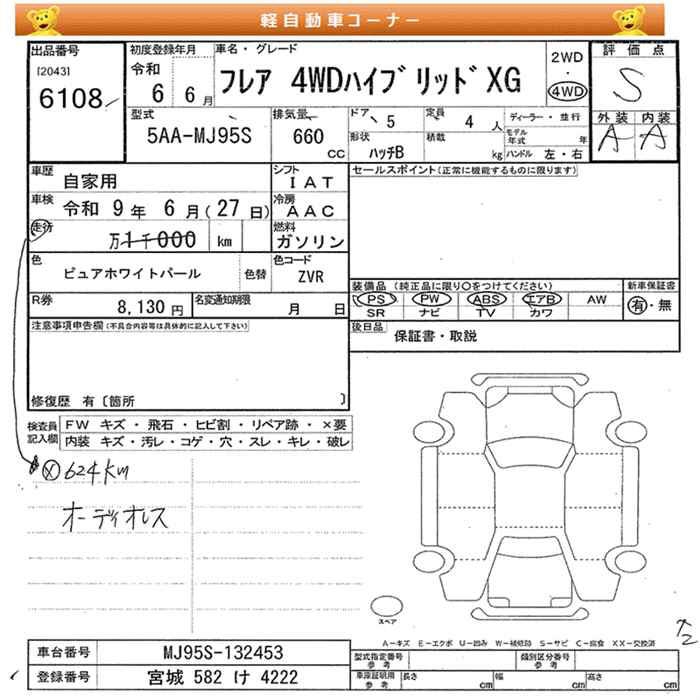 軽自動車コーナー
出品番号
[2043]
6108
初度登録年月
令和
6 6月
車名・グレード
フレア 4WDハイブリッドXG
2WD
・
4WD
評価点
S
型式
5AA-MJ95S
排気量
660
CC
ドア
5
定員
4 人
ディーラー・並行
形状
ハッチB
積載
kg
モデル年式 年
ハンドル 左・右
外装 内装
A A
車歴
自家用
シフト
IAT
車検
令和 9年 6月(27日)
冷房
AAC
走行
万1千000 km
燃料
ガソリン
色
ピュアホワイトパール
色替
色コード
ZVR
R券
8,130円
名変通知期限
月 日
セールスポイント(正常に機能するものに限ります)
装備品 (純正品に限り○をつけてください)
新車保証書
PS PW ABS エアB AW
SR ナビ TV カワ
有・無
後日品
保証書・取説
注意事項申告欄(不具合内容等は具体的に記入して下さい)
修復歴 有〔箇所 〕
検査員記入欄
FW キズ・飛石・ヒビ割・リペア跡・×要
内装 キズ・汚レ・コゲ・穴・スレ・キレ・破レ
624km
オーディオレス
スペア
2
A-キズ E-エクボ U-凹み W-補修跡 S-サビ C-腐食 XX-交換済
車台番号
MJ95S-132453
登録番号
宮城 582 け 4222
型式指定番号
参考
類別区分番号
参考
車庫証明用
参考
長さ cm
幅 cm
高さ cm